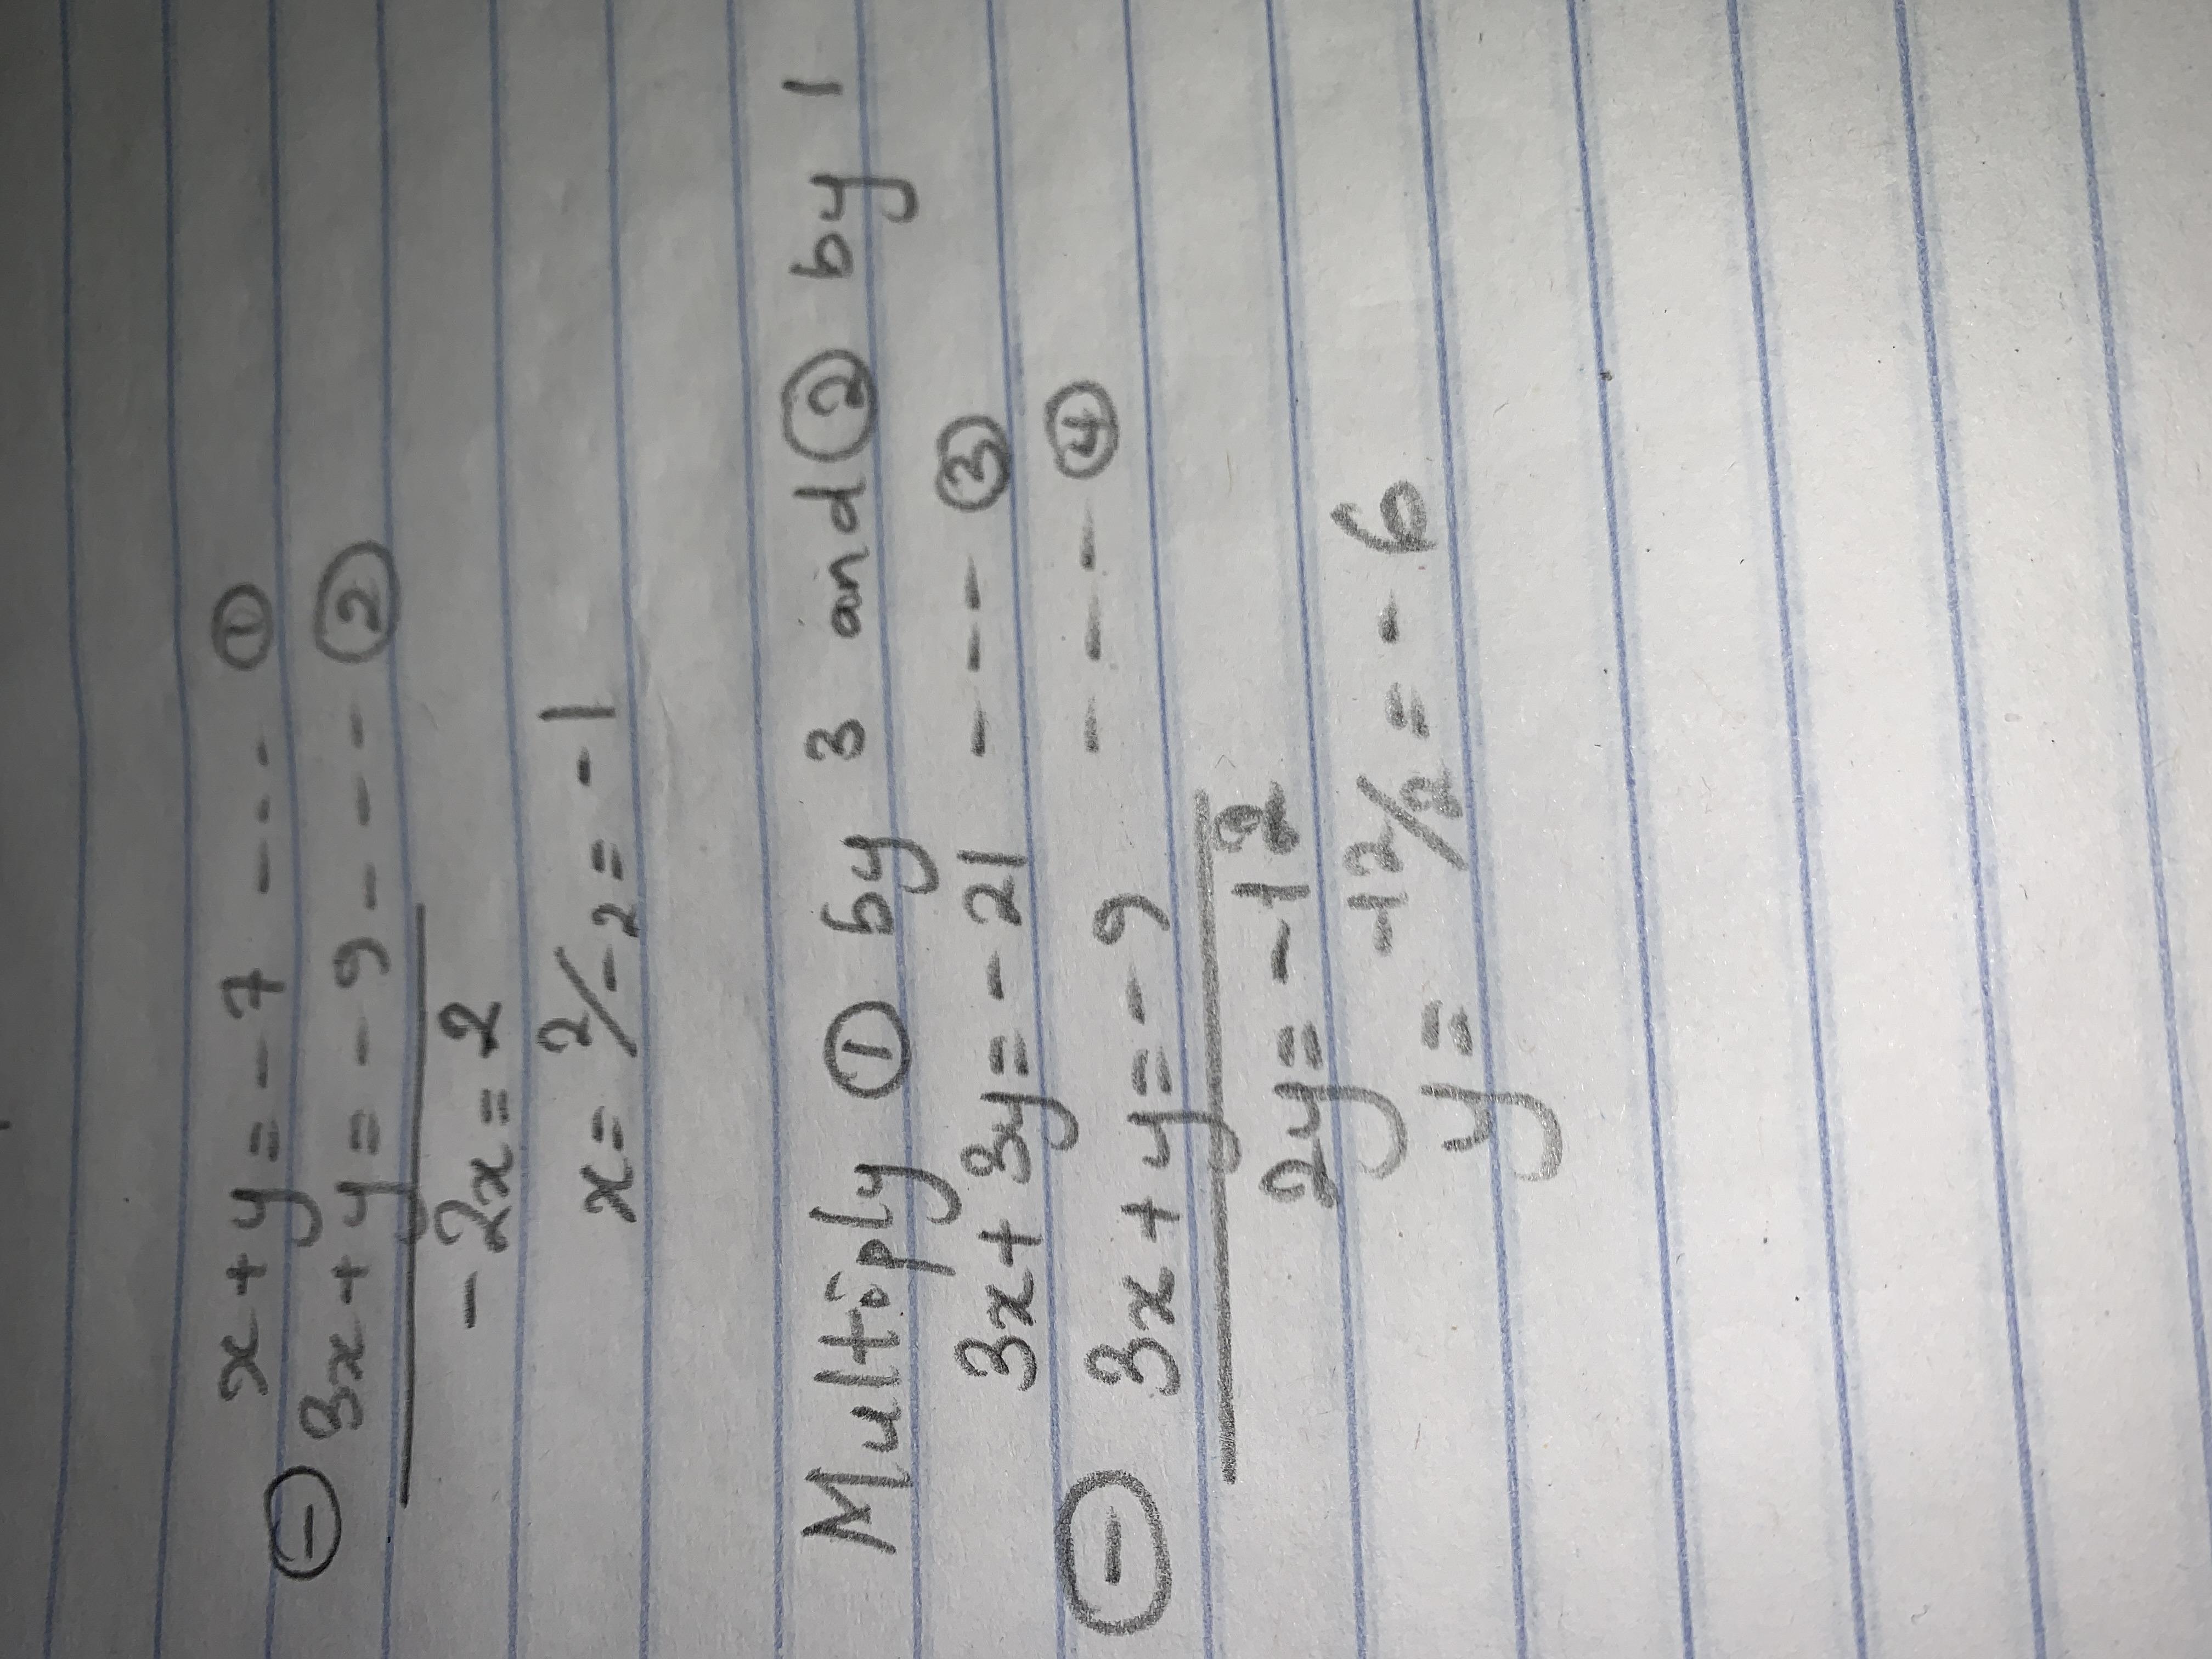 x+y=-7 ---- ①
⊖ 3x+y=-9--- ②
-2x=2
x= 2/-2= -1
Multiply ① by 3 and ② by 1
3x+3y=-21 --- ③
⊖ 3x+y=-9 ---- ④
2y=-12
y= -12/2= -6